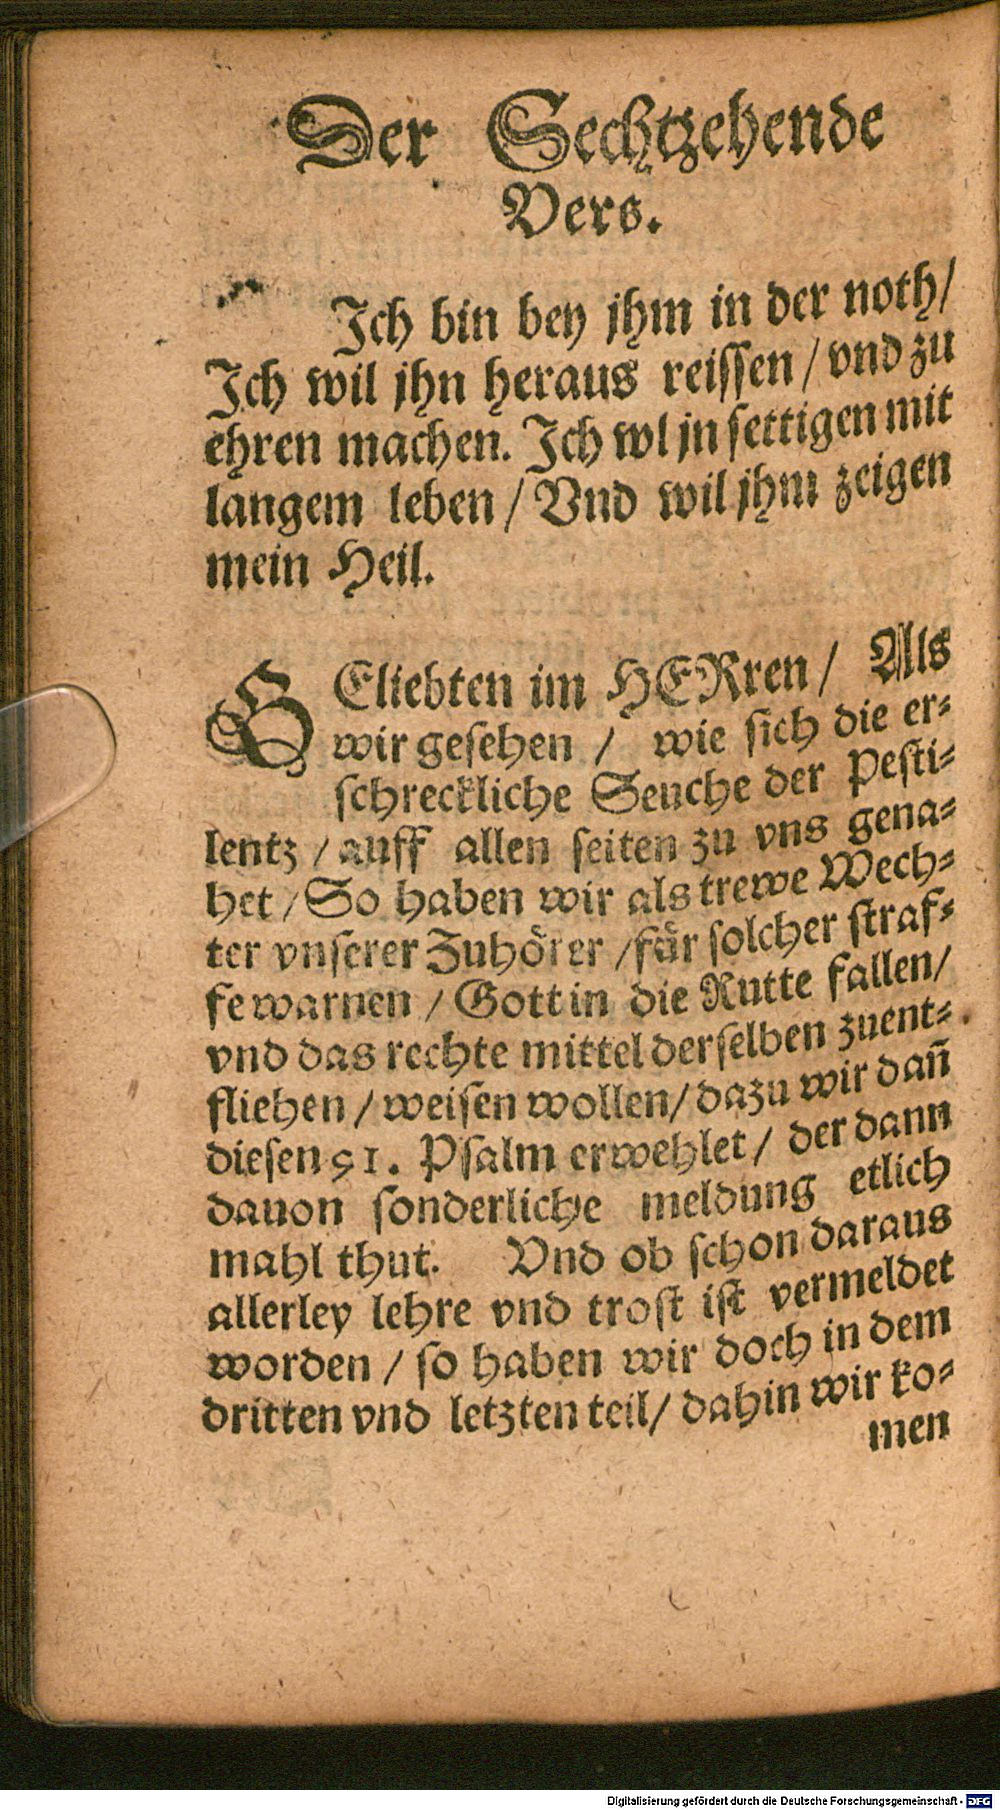 Der Sechtzehende
Vers.
Ich bin bey jhm in der noth/
Ich wil jhn heraus reissen / vnd zu
ehren machen. Ich wl jn settigen mit
langem leben / Vnd wil jhm zeigen
mein Heil.
GEliebten im HERren / Als
wir gesehen / wie sich die er-
schreckliche Seuche der Pesti-
lentz / auff allen seiten zu vns gena-
het / So haben wir als trewe Wech-
ter vnserer Zuhörer / für solcher straf-
fe warnen / Gott in die Rutte fallen/
vnd das rechte mittel derselben zuent-
fliehen / weisen wollen/ dazu wir dañ
diesen 91. Psalm erwehlet / der dann
dauon sonderliche meldung etlich
mahl thut. Vnd ob schon daraus
allerley lehre vnd trost ist vermeldet
worden / so haben wir doch in dem
dritten vnd letzten teil/ dahin wir ko-
men
Digitalisierung gefördert durch die Deutsche Forschungsgemeinschaft - DFG